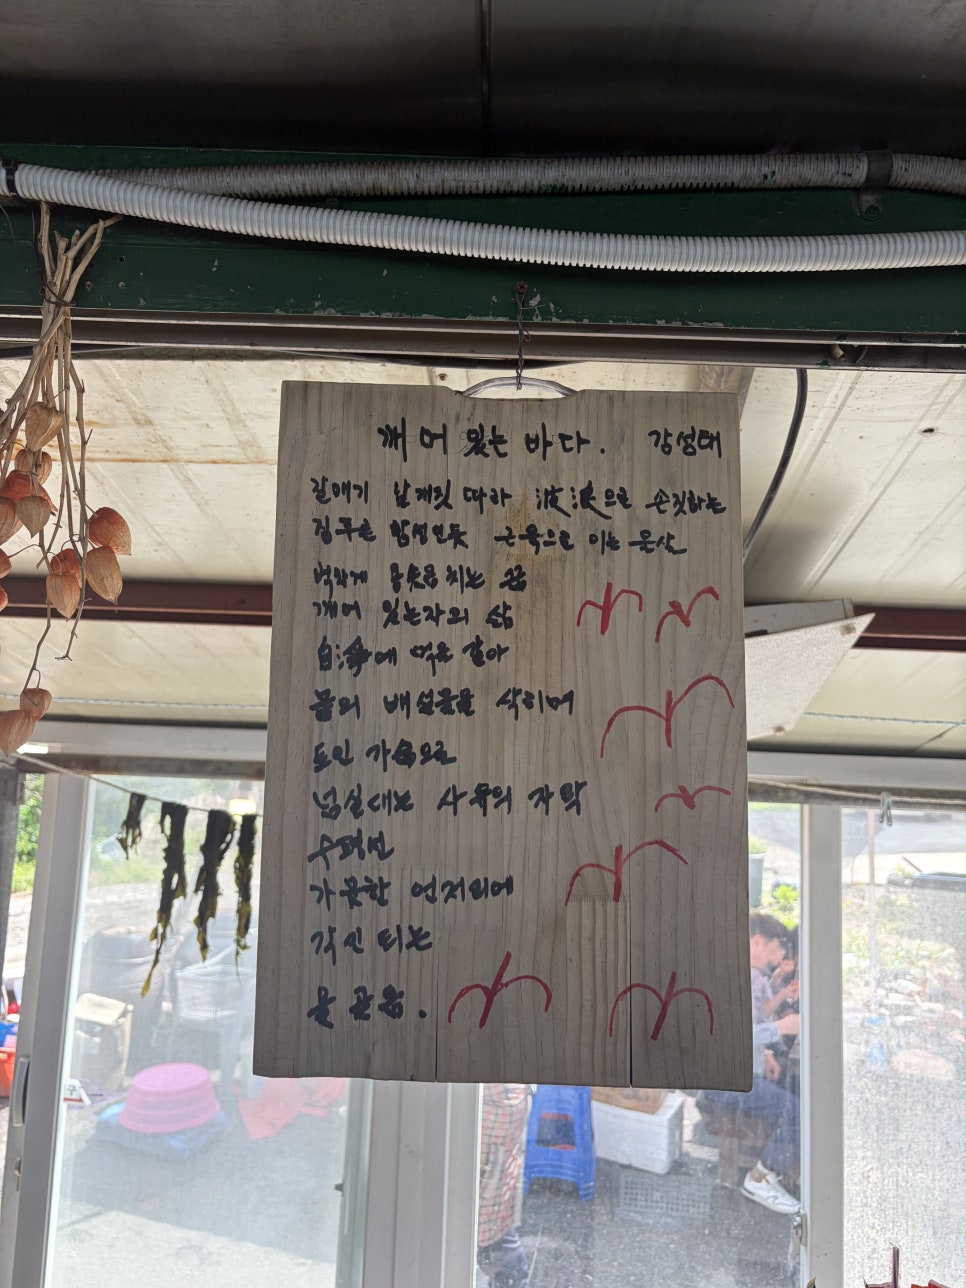 깨어 있는 바다. 강성태
갈매기 날개짓 따라 波浪으로 손짓하는
검푸른 함성인듯 근육으로 이는 몸살
벅차게 용솟음 치는 꿈
깨어 있는자의 삶
白淨에 먹을 갈아
몸의 배설물을 삭히며
도인 가슴으로
넘실대는 사유의 자락
수평선
가뭇한 언저리에
각신 티는
물 관음.